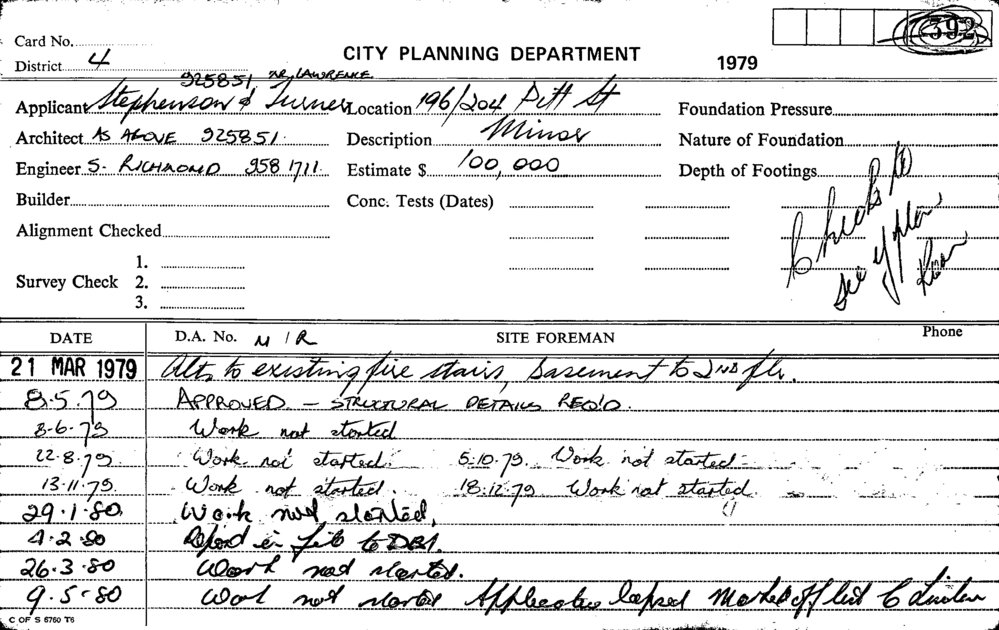 392
Card No.
CITY PLANNING DEPARTMENT 1979
District 4
925851 MR. LAWRENCE
Applicant Stephenson & Turner Location 196/204 Pitt St Foundation Pressure
Architect AS ABOVE 925851. Description Minor Nature of Foundation
Engineer S. RICHMOND 958 1711 Estimate $ 100,000 Depth of Footings
Builder Conc. Tests (Dates)
Alignment Checked
Survey Check 1.
2.
3.
Checks to
see if plan
DATE D.A. No. M / R SITE FOREMAN Phone
21 MAR 1979 Alts to existing fire stairs, basement to 2ND flr.
8.5.79 APPROVED — STRUCTURAL DETAILS REQ'D.
8-6-79 Work not started
22-8-79 Work not started. 5.10.79. Work not started
13.11.79. Work not started. 18.12.79 Work not started
29.1.80. Work not started.
4.2.80 Report in file to DBI.
26.3.80 Work not started.
9.5.80 Work not started Application lapsed Marked off list
C OF S 6760 T6